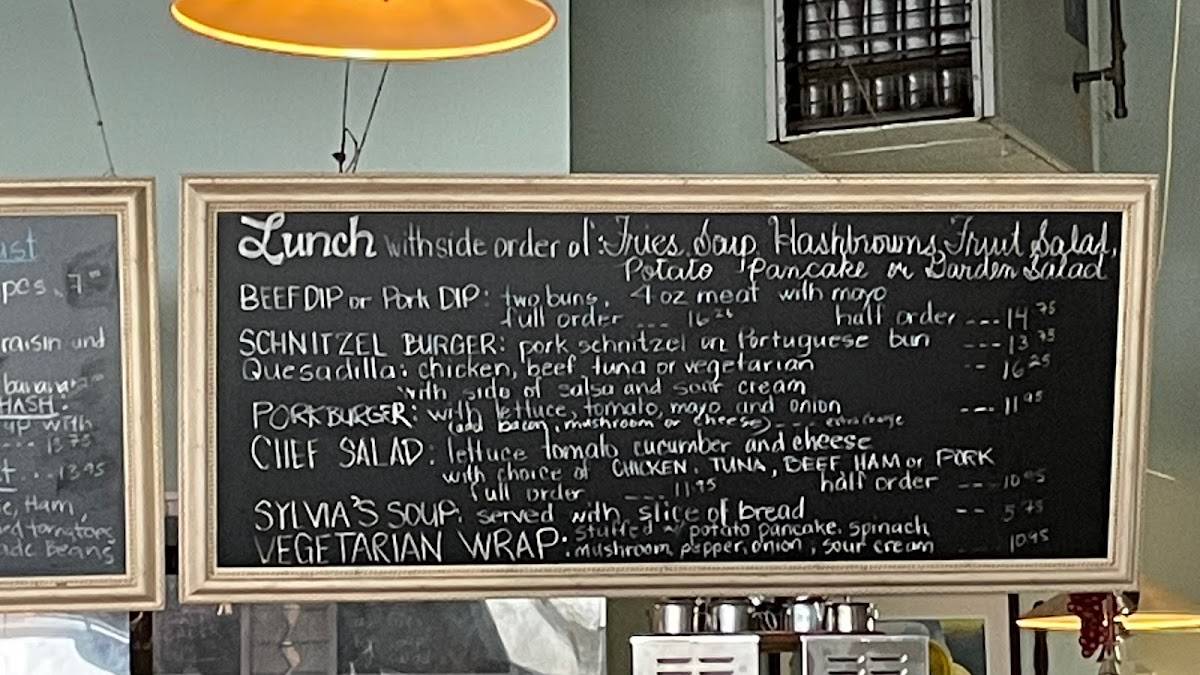 ast
pcs. 7
raisin and
banana
HASH:
up with
--- 13 75
t... 13.95
Ham,
tomatoes
ade beans
Lunch with side order of: Fries, Soup, Hashbrowns, Fruit Salad,
Potato Pancake or Garden Salad
BEEF DIP or Pork DIP: two buns, 4 oz meat with mayo
full order --- 16 25 half order ---14 75
SCHNITZEL BURGER: pork schnitzel on Portuguese bun ---13 75
Quesadilla: chicken, beef, tuna or vegetarian -- 16 25
with side of salsa and sour cream
PORK BURGER: with lettuce, tomato, mayo and onion ---11 95
(add bacon, mushroom or cheese) --- extra charge
CHEF SALAD: lettuce tomato cucumber and cheese
with choice of CHICKEN, TUNA, BEEF, HAM or PORK
full order ---- 11.95 half order ---10 95
SYLVIA'S SOUP: served with slice of bread -- 5 75
VEGETARIAN WRAP: stuffed w/ potato pancake, spinach
mushroom, pepper, onion, sour cream ---- 10 95